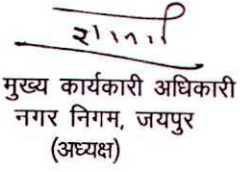 मुख्य कार्यकारी अधिकारी
नगर निगम, जयपुर
(अध्यक्ष)